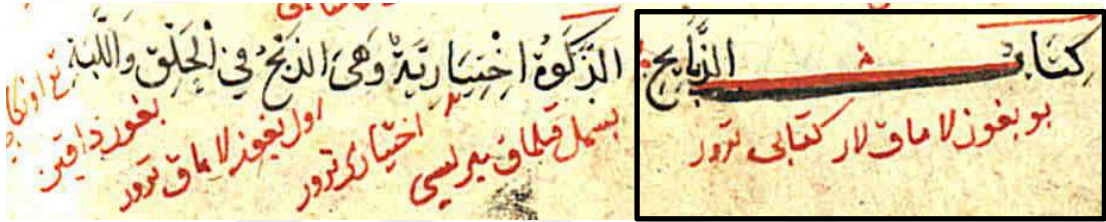 كِتَابُ الذَّبَايِحِ الذَّكَوةُ اخْتِيَارِيَّةٌ وَهْىَ الذَّبْحُ فِي الْحَلْقِ وَاللَّبَّةِ
بو بغوزلاماق لار كتابى ترور بسمل قلماق بيريسى اختيارى ترور اول بغوزلاماق ترور